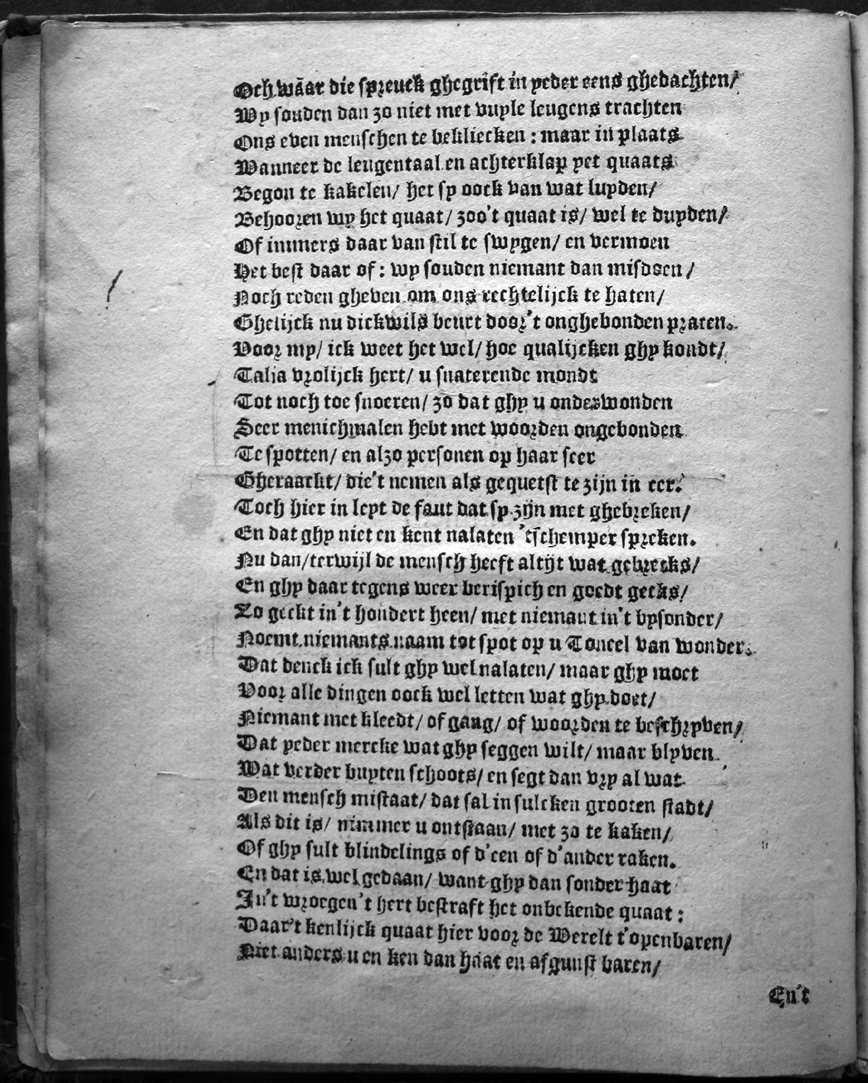 Och wäar die spreuck ghegrift in yeder eens ghedachten/
Wy souden dan zo niet met vuyle leugens trachten
Ons even menschen te bekliecken: maar in plaats
Wanneer de leugentaal en achterklap yet quaats
Begon te kakelen/ het sy oock van wat luyden/
Behooren wy het quaat/ zoo't quaat is/ wel te duyden/
Of immers daar van stil te swygen/ en vermoen
Het best daar of: wy souden niemant dan misdoen/
Noch reden gheven om ons rechtelijck te haten/
Ghelijck nu dickwils beurt door't onghebonden praten.
Voor my/ ick weet het wel/ hoe qualijcken ghy kondt/
Talia vrolijck hert/ u snaterende mondt
Tot noch toe snoeren/ zo dat ghy u onderwonden
Seer menichmalen hebt met woorden ongebonden
Te spotten/ en alzo personen op haar seer
Gheraackt/ die't nemen als gequetst te zijn in eer.
Toch hier in leyt de faut dat sy zijn met ghebreken/
En dat ghy niet en kent nalaten 'tschemper spreken.
Nu dan/terwijl de mensch heeft altijt wat gebrecks/
En ghy daar tegens weer berispich en goedt gecks/
Zo geckt in't hondert heen/ met niemant in't bysonder/
Noemt niemants naam tot spot op u Toneel van wonder.
Dat denck ick sult ghy wel nalaten/ maar ghy moet
Voor alle dingen oock wel letten wat ghy doet/
Niemant met kleedt/ of gang/ of woorden te beschryven/
Dat yeder mercke wat ghy seggen wilt/ maar blyven
Wat verder buyten schoots/ en segt dan vry al wat
Den mensch mistaat/ dat sal in sulcken grooten stadt/
Als dit is/ nimmer u ontstaan/ met zo te kaken/
Of ghy sult blindelings of d'een of d'ander raken.
En dat is wel gedaan/ want ghy dan sonder haat
In't wroegen't hert bestraft het onbekende quaat:
Daar't kenlijck quaat hier voor de Werelt t'openbaren/
Niet anders u en ken dan haat en afgunst baren/
En't